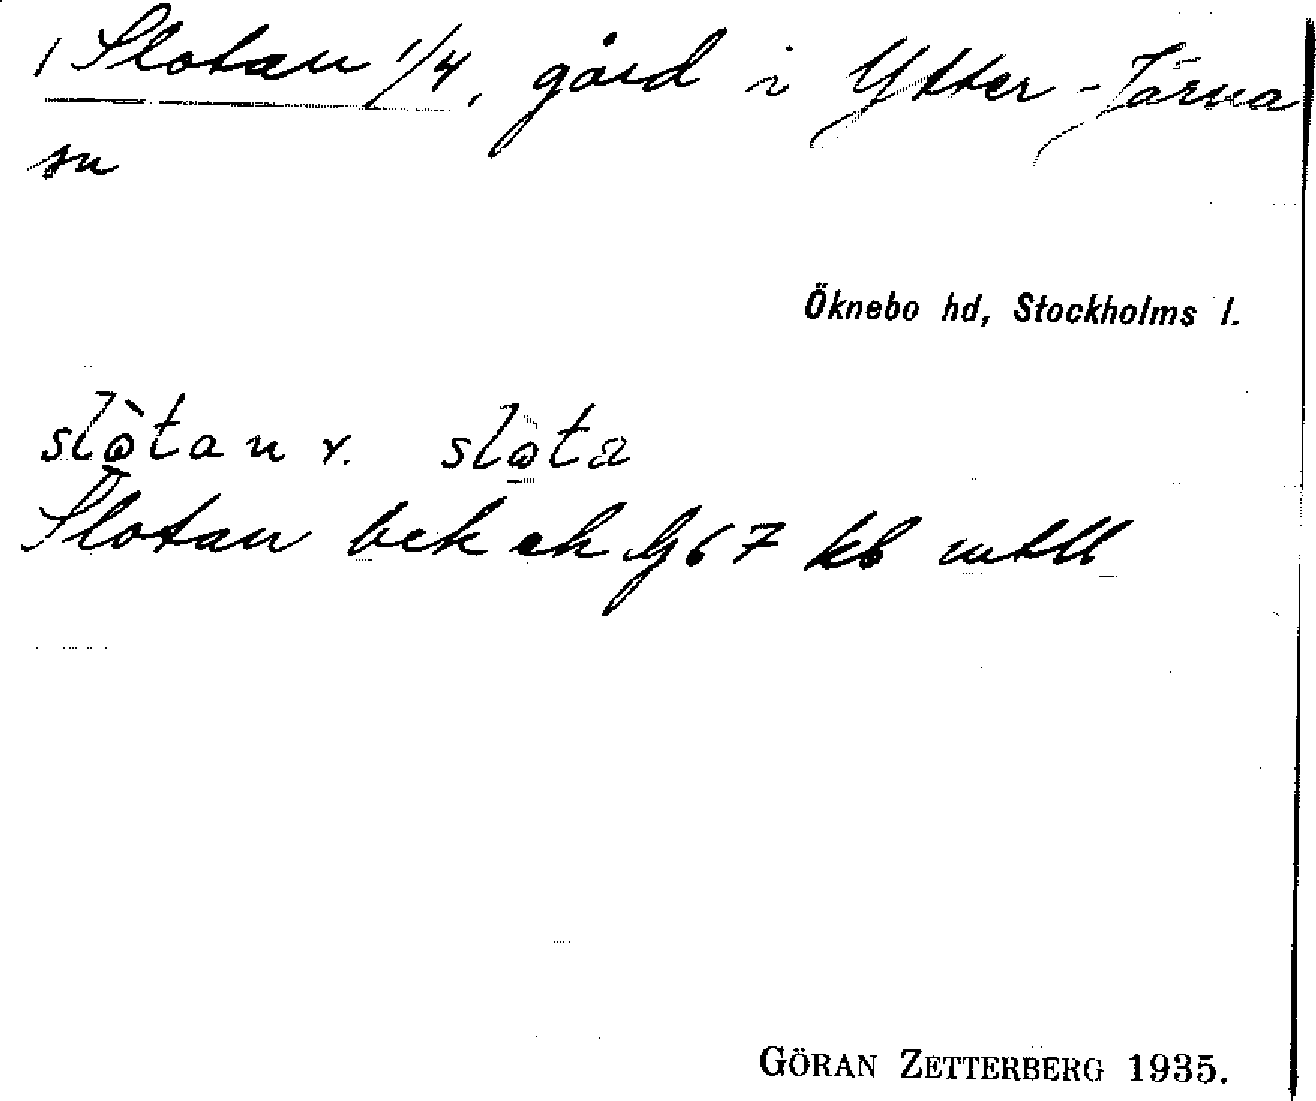 1 Slotan 1/4, gård i Ytter-Järna
sn
Öknebo hd, Stockholms l.
slòtan v. slota
Slotan bek ek 67 kb mtll
GÖRAN ZETTERBERG 1935.